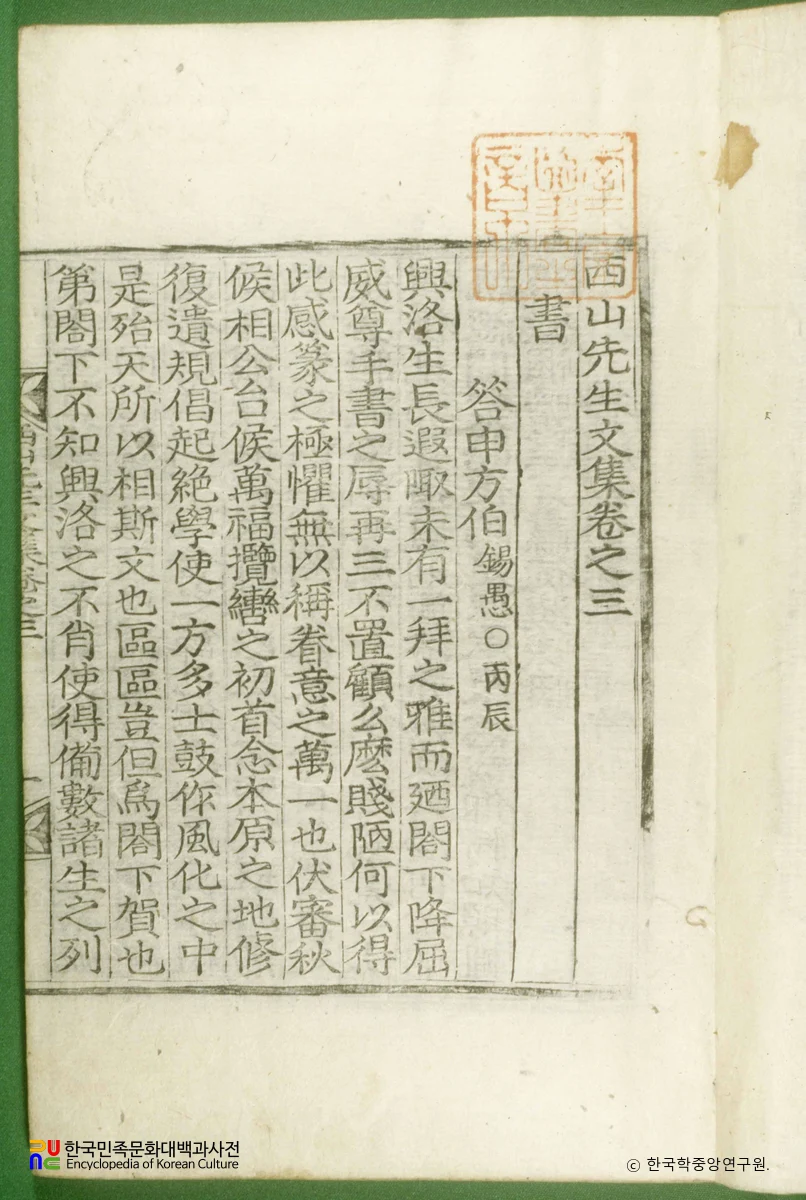 西山先生文集卷之三
書
答申方伯 錫愚○丙辰
興洛生長遐陬未有一拜之雅而廼閤下降屈
威尊手書之辱再三不置顧么麽賤陋何以得
此感篆之極懼無以稱眷意之萬一也伏審秋
候相公台候萬福攬轡之初首念本原之地修
復遺規倡起絶學使一方多士鼓作風化之中
是殆天所以相斯文也區區豈但爲閤下賀也
第閤下不知興洛之不肖使得備數諸生之列
西山先生文集卷之三
一
한국민족문화대백과사전
Encyclopedia of Korean Culture
ⓒ 한국학중앙연구원.